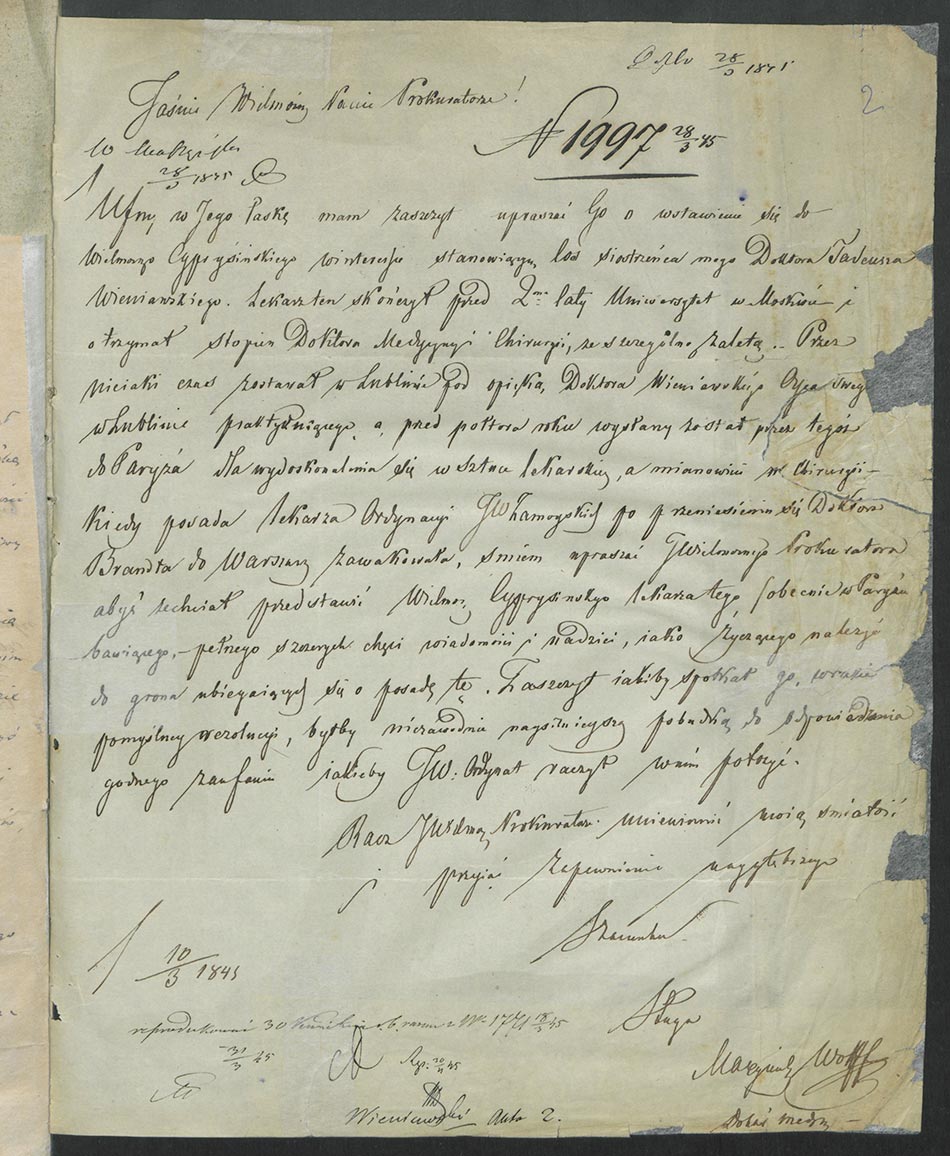 28/3 1845
2
Jaśnie Wielmożny Panie Prokuratorze!
N 1997 28/3 45
28/3 1845
Ufny w Jego Łaskę mam zaszczyt upraszać Go o wstawienie się do
Wielmożgo Cyprysińskiego w interessie stanowiącym los siostrzeńca mego Doktora Tadeusza
Wieniawskiego. Lekarz ten skończył przed 2ma laty Uniwersytet w Moskwie i
otrzymał stopień Doktora Medycyny i Chirurgii, ze szczególną zaletą. Przez
nieiaki czas zostawał w Lublinie pod opieką Doktora Wieniawskiego Oyca swego
w Lublinie praktykuiącego, a przed półtora roku wysłany został przez tegoż
do Paryża dla wydoskonalenia się w sztuce lekarskiey, a mianowicie w Chirurgii –
Kiedy posada lekarza Ordynacyi JW Zamoyskich po przeniesieniu się Doktora
Brandta do Warszawy zawakowała, śmiem upraszać JWielmożnego Prokuratora
abyś zechciał przedstawić Wielmoż Cyprysińskgo lekarza tego (obecnie w Paryżu
bawiącego, – pełnego szczerych chęci wiadomości i nadziei, iako życzącego należyć
do grona ubiegaiących się o posadę tę. Zaszczyt iakiby spotkał go, w razie
pomyślney rezolucyi, byłby niezawodnie naysilnieyszą pobudką do odpowiedzenia
godnego zaufaniu iakieby JW: Ordynat raczył w nim położyć.
Racz JWielmoż Prokuratorze uniewinnić moią śmiałość
i przyiąć zapewnienie naygłębszego
Szacunku
10/3 1845
Sługa
reprodukować 30 z Nr 1771 18/3 45
31/3 45
Maxymil Wolff
Wieniawski Akta 2.
Doktór Medyc